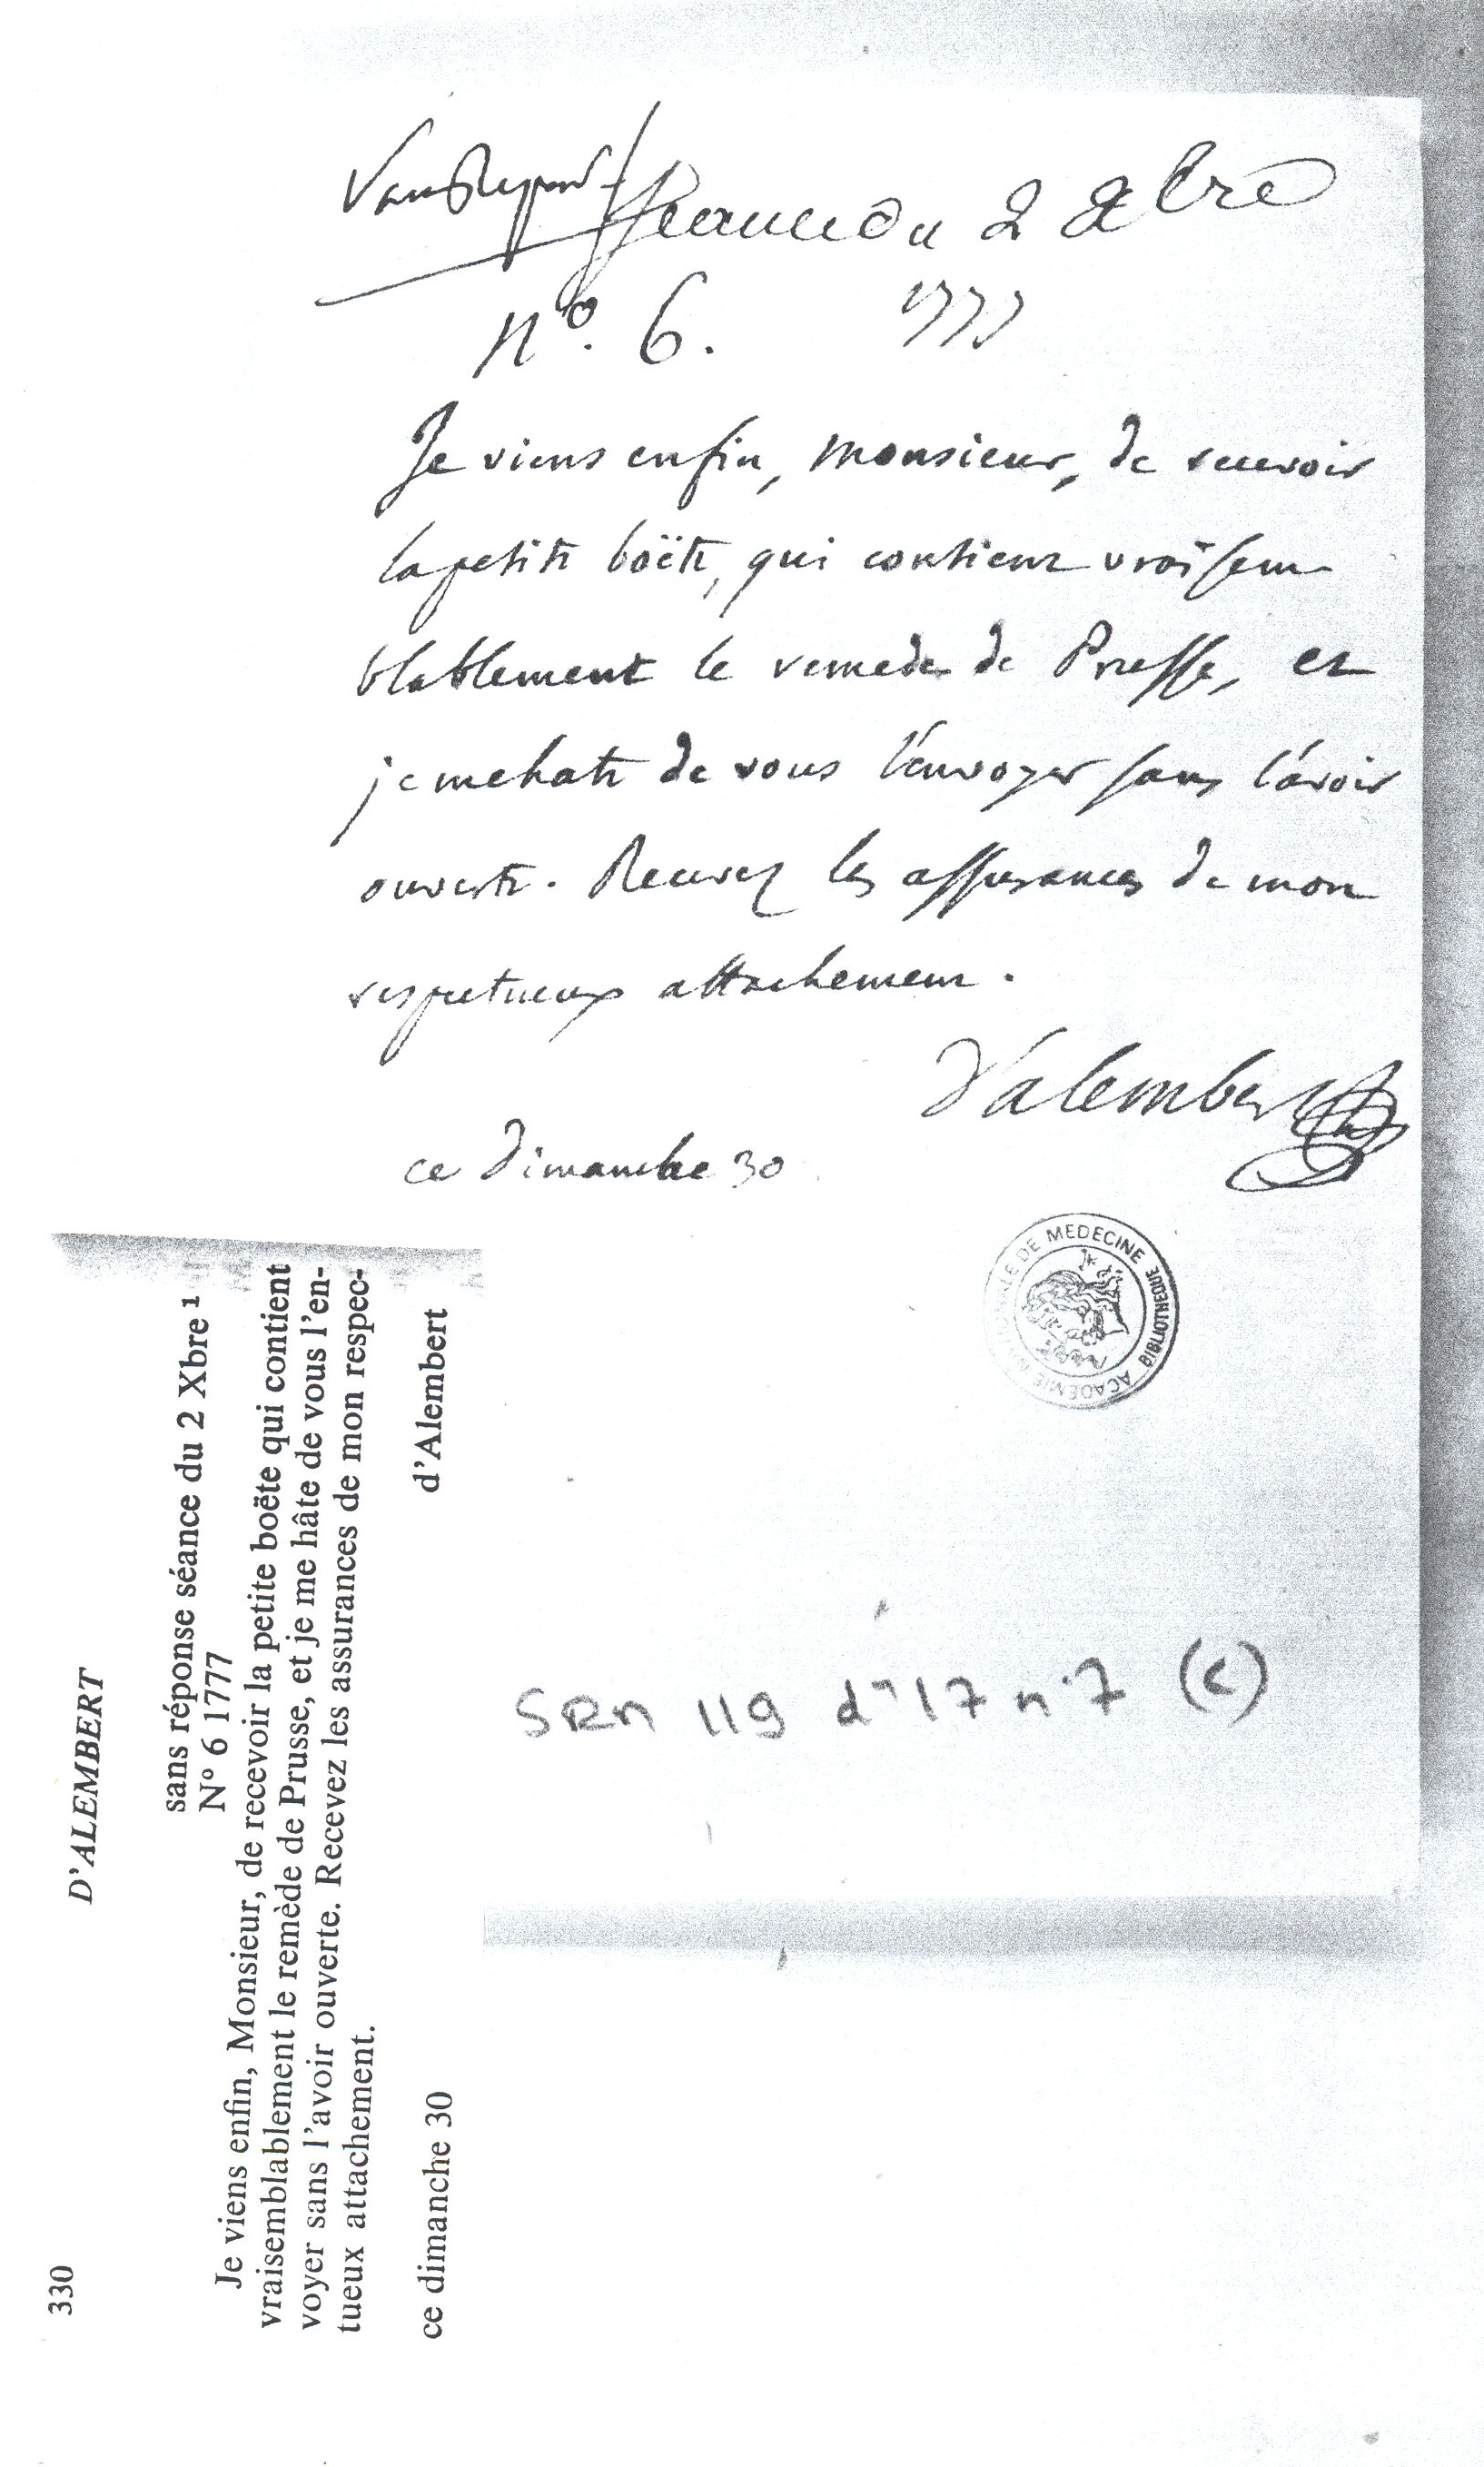 sans Reponse / seance du 2 xbre
n°. 6. 1777
Je viens enfin, monsieur, de recevoir
la petite boëte, qui contient vraisem
blablement le remede de Prusse, et
je me hate de vous l'envoyer sans l'avoir
ouverte. Recevez les assurances de mon
respectueux attachement.
D'alembert
ce Dimanche 30
ACADEMIE NATIONALE DE MEDECINE BIBLIOTHEQUE
SRM 119 dr 17 n°7 (c)
330
D'ALEMBERT
sans réponse séance du 2 Xbre 1
N° 6 1777
Je viens enfin, Monsieur, de recevoir la petite boëte qui contient
vraisemblablement le remède de Prusse, et je me hâte de vous l'en-
voyer sans l'avoir ouverte. Recevez les assurances de mon respec-
tueux attachement.
d'Alembert
ce dimanche 30